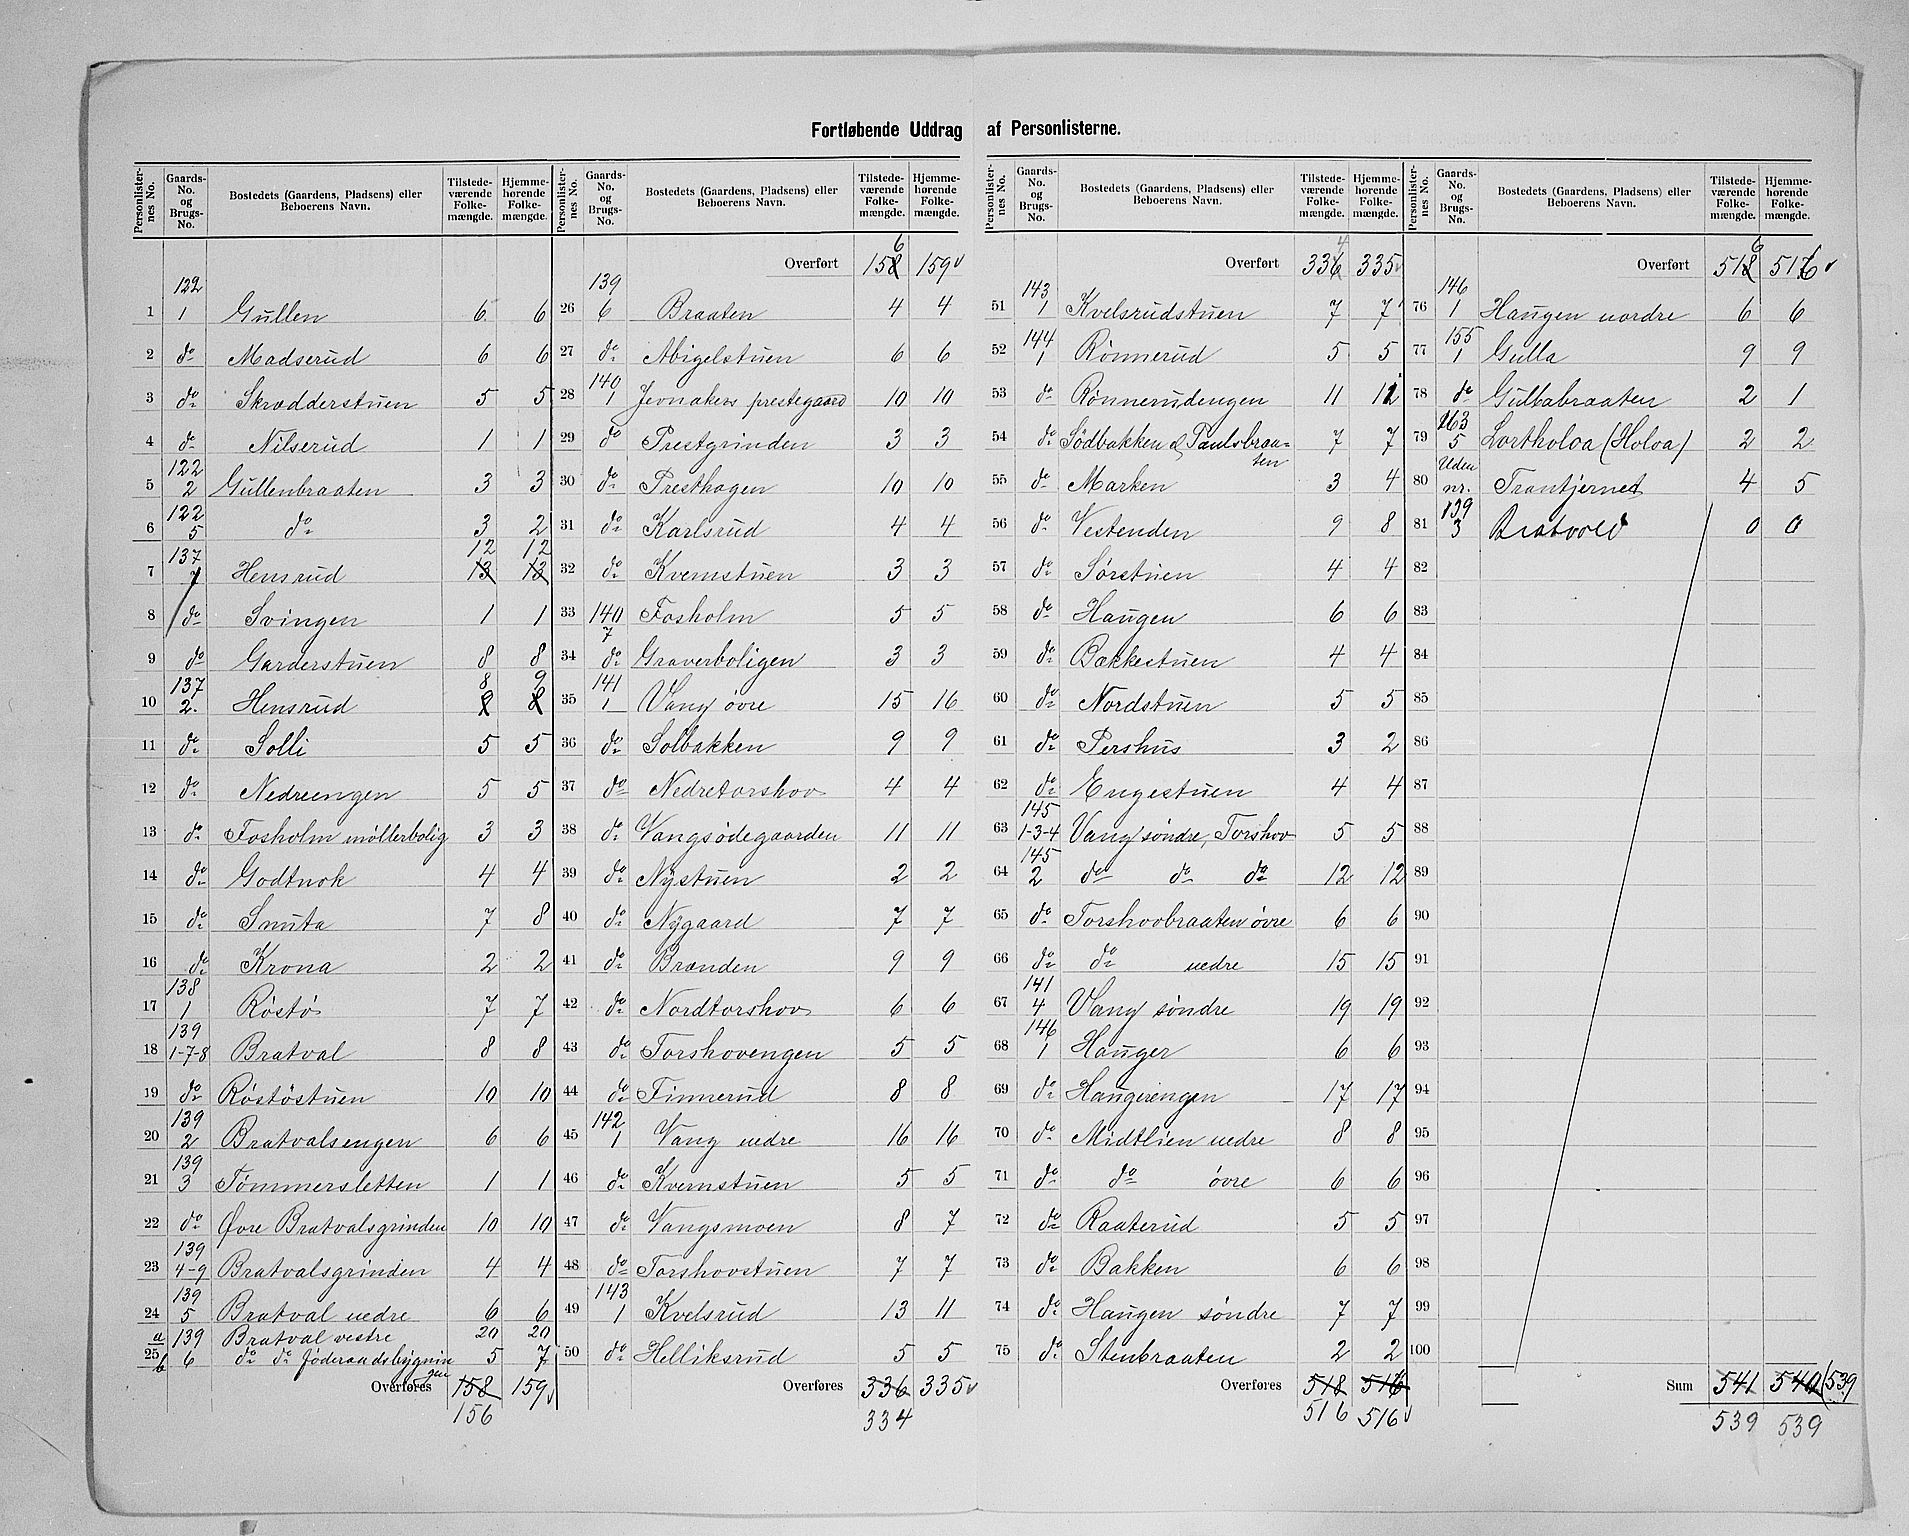 Fortløbende Uddrag af Personlisterne.
Personlisternes No. Gaards-No. og Brugs-No. Bostedets (Gaardens, Pladsens) eller Beboerens Navn. Tilstedeværende Folkemængde. Hjemmehørende Folkemængde.
1 122 1 Gullen 6 6
2 do Madserud 6 6
3 do Skrædderstuen 5 5
4 do Nilserud 1 1
5 122 2 Gullenbraaten 3 3
6 122 5 do 3 2
7 137 1 Hensrud 13 12 13 12
8 do Svingen 1 1
9 do Garderstuen 8 8
10 137 2. Hensrud 9 8 8 9
11 do Solli 5 5
12 do Nedreengen 5 5
13 do Fosholm møllerbolig 3 3
14 do Godtnok 4 4
15 do Snuta 7 8
16 do Krona 2 2
17 138 1 Røstø 7 7
18 139 1-7-8 Bratval 8 8
19 do Røstøstuen 10 10
20 139 2 Bratvalsengen 6 6
21 139 3 Tømmersletten 1 1
22 do Øvre Bratvalsgrinden 10 10
23 139 4-9 Bratvalsgrinden 4 4
24 139 5 Bratval nedre 6 6
25 a 139 6 Bratval vestre 20 20
b do do føderaadsbygningen 5 7
Overføres 158 159
156
Personlisternes No. Gaards-No. og Brugs-No. Bostedets (Gaardens, Pladsens) eller Beboerens Navn. Tilstedeværende Folkemængde. Hjemmehørende Folkemængde.
Overført 158 6 159
26 139 6 Braaten 4 4
27 do Abigelstuen 6 6
28 140 1 Jevnakers prestegaard 10 10
29 do Prestgrinden 3 3
30 do Presthagen 10 10
31 do Karlsrud 4 4
32 do Kvernstuen 3 3
33 140 7 Fosholm 5 5
34 do Graverboligen 3 3
35 141 1 Vang øvre 15 16
36 do Solbakken 9 9
37 do Nedretorshov 4 4
38 do Vangsødegaarden 11 11
39 do Nystuen 2 2
40 do Nygaard 7 7
41 do Brænden 9 9
42 do Nordtorshov 6 6
43 do Torshovengen 5 5
44 do Finnerud 8 8
45 142 1 Vang nedre 16 16
46 do Kvernstuen 5 5
47 do Vangsmoen 8 7
48 do Torshovstuen 7 7
49 143 1 Kvelsrud 13 11
50 do Helliksrud 5 5
Overføres 336 335
334
Personlisternes No. Gaards-No. og Brugs-No. Bostedets (Gaardens, Pladsens) eller Beboerens Navn. Tilstedeværende Folkemængde. Hjemmehørende Folkemængde.
Overført 336 4 335
51 143 1 Kvelsrudstuen 7 7
52 144 1 Rønnerud 5 5
53 do Rønnerudengen 11
54 do Sødbakken & Paulsbraaten 7 7
55 do Marken 3 4
56 do Vestenden 9 8
57 do Sørstuen 4 4
58 do Haugen 6 6
59 do Bakkestuen 4 4
60 do Nordstuen 5 5
61 do Pershus 3 2
62 do Engestuen 4 4
63 145 1-3-4 Vang søndre, Torshov 5 5
64 145 2 do do do 12 12
65 do Torshovbraaten øvre 6 6
66 do do nedre 15 15
67 141 4 Vang søndre 19 19
68 146 1 Hauger 6 6
69 do Haugerengen 17 17
70 do Midtlien nedre 8 8
71 do do øvre 6 6
72 do Raaterud 5 5
73 do Bakken 6 6
74 do Haugen søndre 7 7
75 do Stenbraaten 2 2
Overføres 518 516
516 516
Personlisternes No. Gaards-No. og Brugs-No. Bostedets (Gaardens, Pladsens) eller Beboerens Navn. Tilstedeværende Folkemængde. Hjemmehørende Folkemængde.
Overført 518 6 516
76 146 1 Haugen nordre 6 6
77 155 1 Gulla 9 9
78 do Gullabraaten 2 1
79 163 5 Lortholoa (Holoa) 2 2
80 Uden nr. Trantjernet 4 5
81 139 3 Bratvold 0 0
82
83
84
85
86
87
88
89
90
91
92
93
94
95
96
97
98
99
100
Sum 541 540 (539
539 539